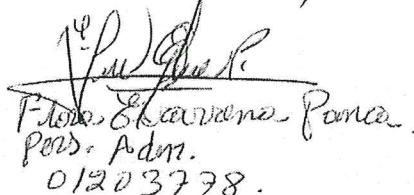 Flora Escarrena Panca.
Pers. Adm.
01203778.